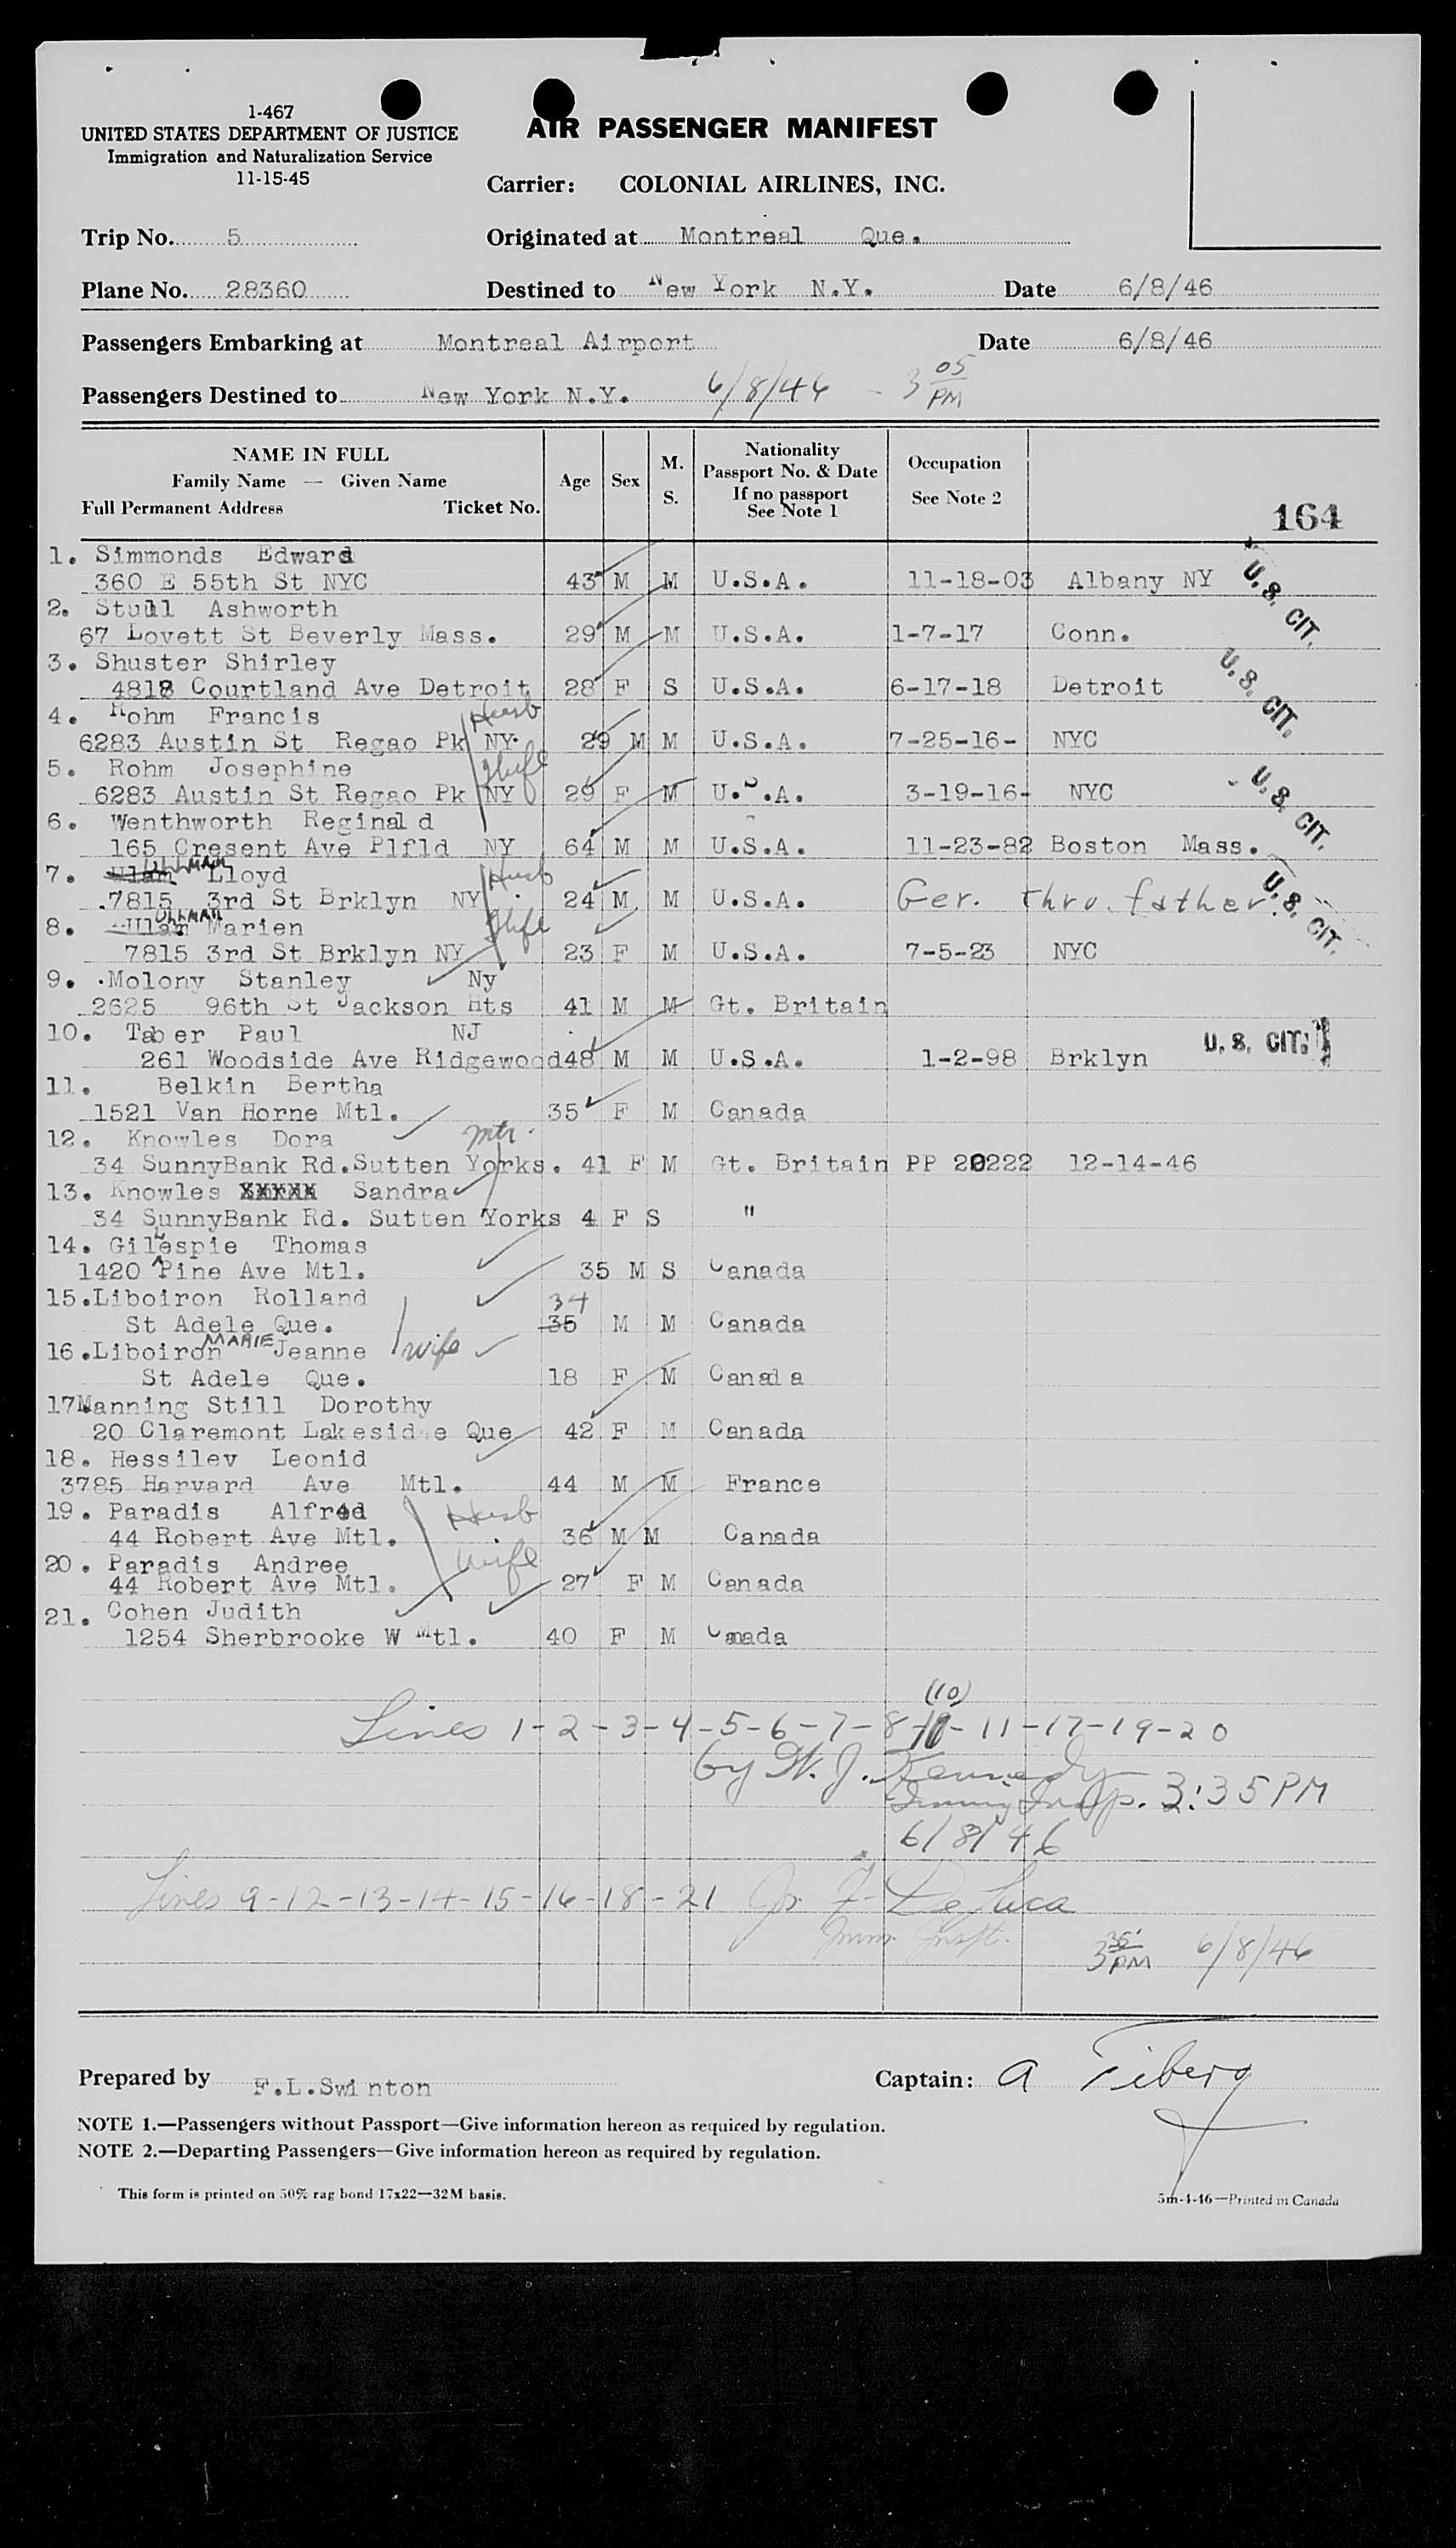 1-467
UNITED STATES DEPARTMENT OF JUSTICE
Immigration and Naturalization Service
11-15-45
AIR PASSENGER MANIFEST
Carrier: COLONIAL AIRLINES, INC.
Trip No. 5 Originated at Montreal Que.
Plane No. 28360 Destined to New York N.Y. Date 6/8/46
Passengers Embarking at Montreal Airport Date 6/8/46
Passengers Destined to New York N.Y. 6/8/46 - 3 05 PM
NAME IN FULL
Family Name — Given Name
Full Permanent Address Ticket No.
Age
Sex
M. S.
Nationality
Passport No. & Date
If no passport
See Note 1
Occupation
See Note 2
164
1. Simmonds Edward
360 E 55th St NYC 43 M M U.S.A. 11-18-03 Albany NY U.S. CIT.
2. Stull Ashworth
67 Lovett St Beverly Mass. 29 M M U.S.A. 1-7-17 Conn.
3. Shuster Shirley
4818 Courtland Ave Detroit 28 F S U.S.A. 6-17-18 Detroit U.S. CIT.
4. Rohm Francis Husb
6283 Austin St Regao Pk NY. 29 M M U.S.A. 7-25-16- NYC
5. Rohm Josephine Wife
6283 Austin St Regao Pk NY 29 F M U.S.A. 3-19-16- NYC U.S. CIT.
6. Wenthworth Reginald
165 Cresent Ave Plfld NY 64 M M U.S.A. 11-23-82 Boston Mass.
7. Ulam ULLMAN Lloyd Husb
7815 3rd St Brklyn NY 24 M M U.S.A. Ger. Thru. father. U.S. CIT.
8. Ulam ULLMAN Marien Wife
7815 3rd St Brklyn NY 23 F M U.S.A. 7-5-23 NYC
9. Molony Stanley Ny
2625 96th St Jackson Hts 41 M M Gt. Britain
10. Taber Paul NJ
261 Woodside Ave Ridgewood 48 M M U.S.A. 1-2-98 Brklyn U.S. CIT.
11. Belkin Bertha
1521 Van Horne Mtl. 35 F M Canada
12. Knowles Dora mtr.
34 SunnyBank Rd.Sutten Yorks. 41 F M Gt. Britain PP 20222 12-14-46
13. Knowles XXXXX Sandra
34 SunnyBank Rd. Sutten Yorks 4 F S "
14. Gillespie Thomas
1420 Pine Ave Mtl. 35 M S Canada
15.Liboiron Rolland 34
St Adele Que. 35 M M Canada
16.Liboiron MARIE Jeanne wife
St Adele Que. 18 F M Canada
17Manning Still Dorothy
20 Claremont Lakeside Que 42 F M Canada
18. Hessilev Leonid
3785 Harvard Ave Mtl. 44 M M France
19. Paradis Alfred Husb
44 Robert Ave Mtl. 36 M M Canada
20. Paradis Andree wife
44 Robert Ave Mtl. 27 F M Canada
21. Cohen Judith
1254 Sherbrooke W Mtl. 40 F M Canada
(10)
Lines 1-2-3-4-5-6-7-8-10-11-17-19-20
by W. J. Kennedy
Insp. 3:35 PM
6/8/46
Lines 9-12-13-14-15-16-18-21 F. De Luca
Imm. Inspt. 3 35 PM 6/8/46
Prepared by F.L.Swinton Captain: A Fiberg
NOTE 1.—Passengers without Passport—Give information hereon as required by regulation.
NOTE 2.—Departing Passengers—Give information hereon as required by regulation.
This form is printed on 50% rag bond 17x22—32M basis. 5m-4-46—Printed in Canada